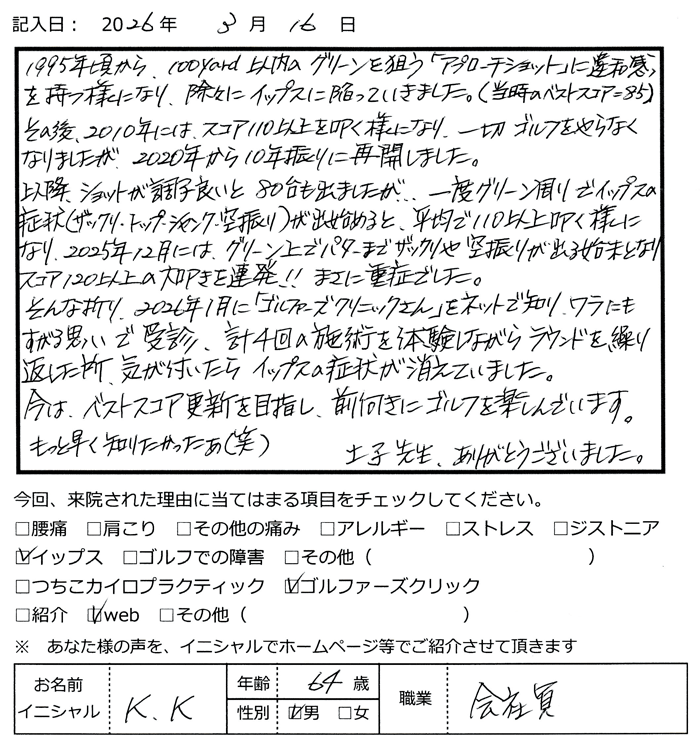 記入日： 2026年 3月 16日
1995年頃から、100yard以内のグリーンを狙う「アプローチショット」に違和感
を持つ様になり、除々にイップスに陥っていきました。(当時のベストスコア=85)
その後、2010年には、スコア110以上を叩く様になり、一切ゴルフをやらなく
なりましたが、2020年から10年振りに再開しました。
以降、ショットが調子良いと80台も出ましたが、、一度グリーン周りでイップスの
症状(ザックリ・トップ・シャンク・空振り)が出始めると、平均で110以上叩く様に
なり、2025年12月には、グリーン上でパターまでザックリや空振りが出る始末となり
スコア120以上の大叩きを連発!! まさに重症でした。
そんな折り、2026年1月に「ゴルファーズクリニックさん」をネットで知り、ワラにも
すがる思いで受診、計4回の施術を体験しながらラウンドを繰り
返した所、気が付いたらイップスの症状が消えていました。
今は、ベストスコア更新を目指し、前向きにゴルフを楽しんでいます。
もっと早く知りたかったあ(笑)　土子先生、ありがとうございました。
今回、来院された理由に当てはまる項目をチェックしてください。
□腰痛 □肩こり □その他の痛み □アレルギー □ストレス □ジストニア
☑イップス □ゴルフでの障害 □その他（　　　　）
□つちこカイロプラクティック ☑ゴルファーズクリック
□紹介 ☑web □その他（　　　　）
※ あなた様の声を、イニシャルでホームページ等でご紹介させて頂きます
お名前
イニシャル K.K 年齢 64歳 性別 ☑男 □女 職業 会社員